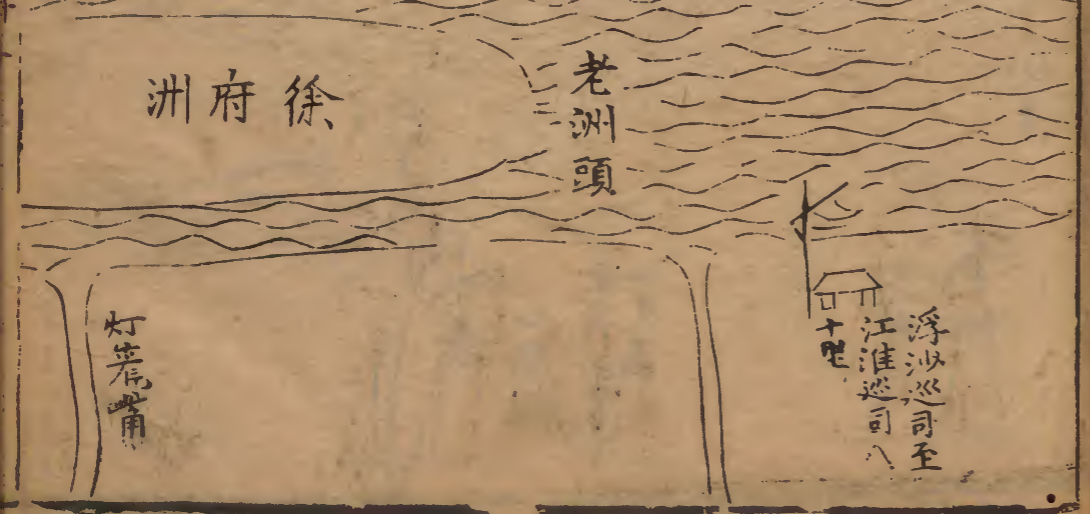 徐府洲
老洲頭
浮沙巡司至
江淮巡司八
十里
灯盞嘴